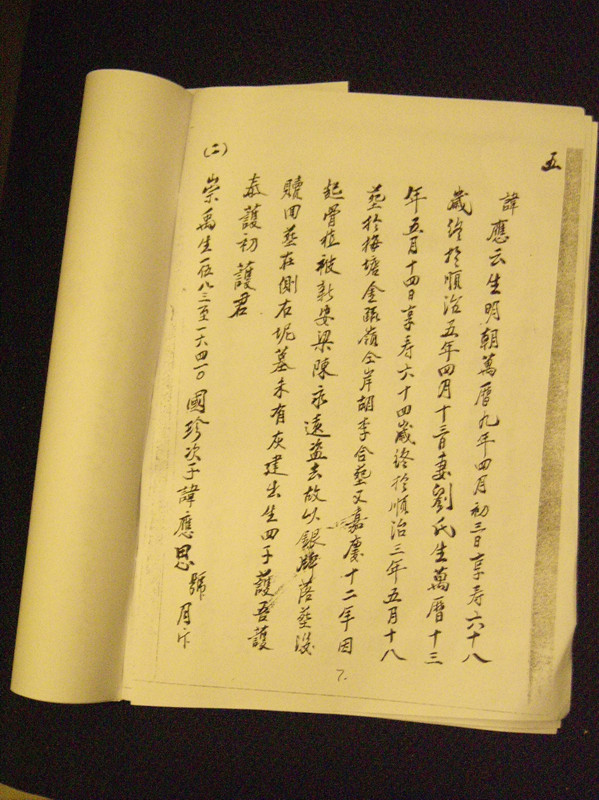 五
諱應云生明朝萬曆九年四月初三日享寿六十八
歲終於順治五年四月十三日妻劉氏生萬曆十三
年五月十四日享寿六十四歲終於順治三年五月十八
葬於梅塘金 嶺仝岸胡李合葬又嘉慶十二年因
起骨植被新安梁陳永遠盗去故以銀牌落葬後
贖田葬在側右坭墓未有灰建出生四子護吾護
泰護初護君
(二)
崇禹生一五八三至一六四一〇國珍次子諱應思號月
7.